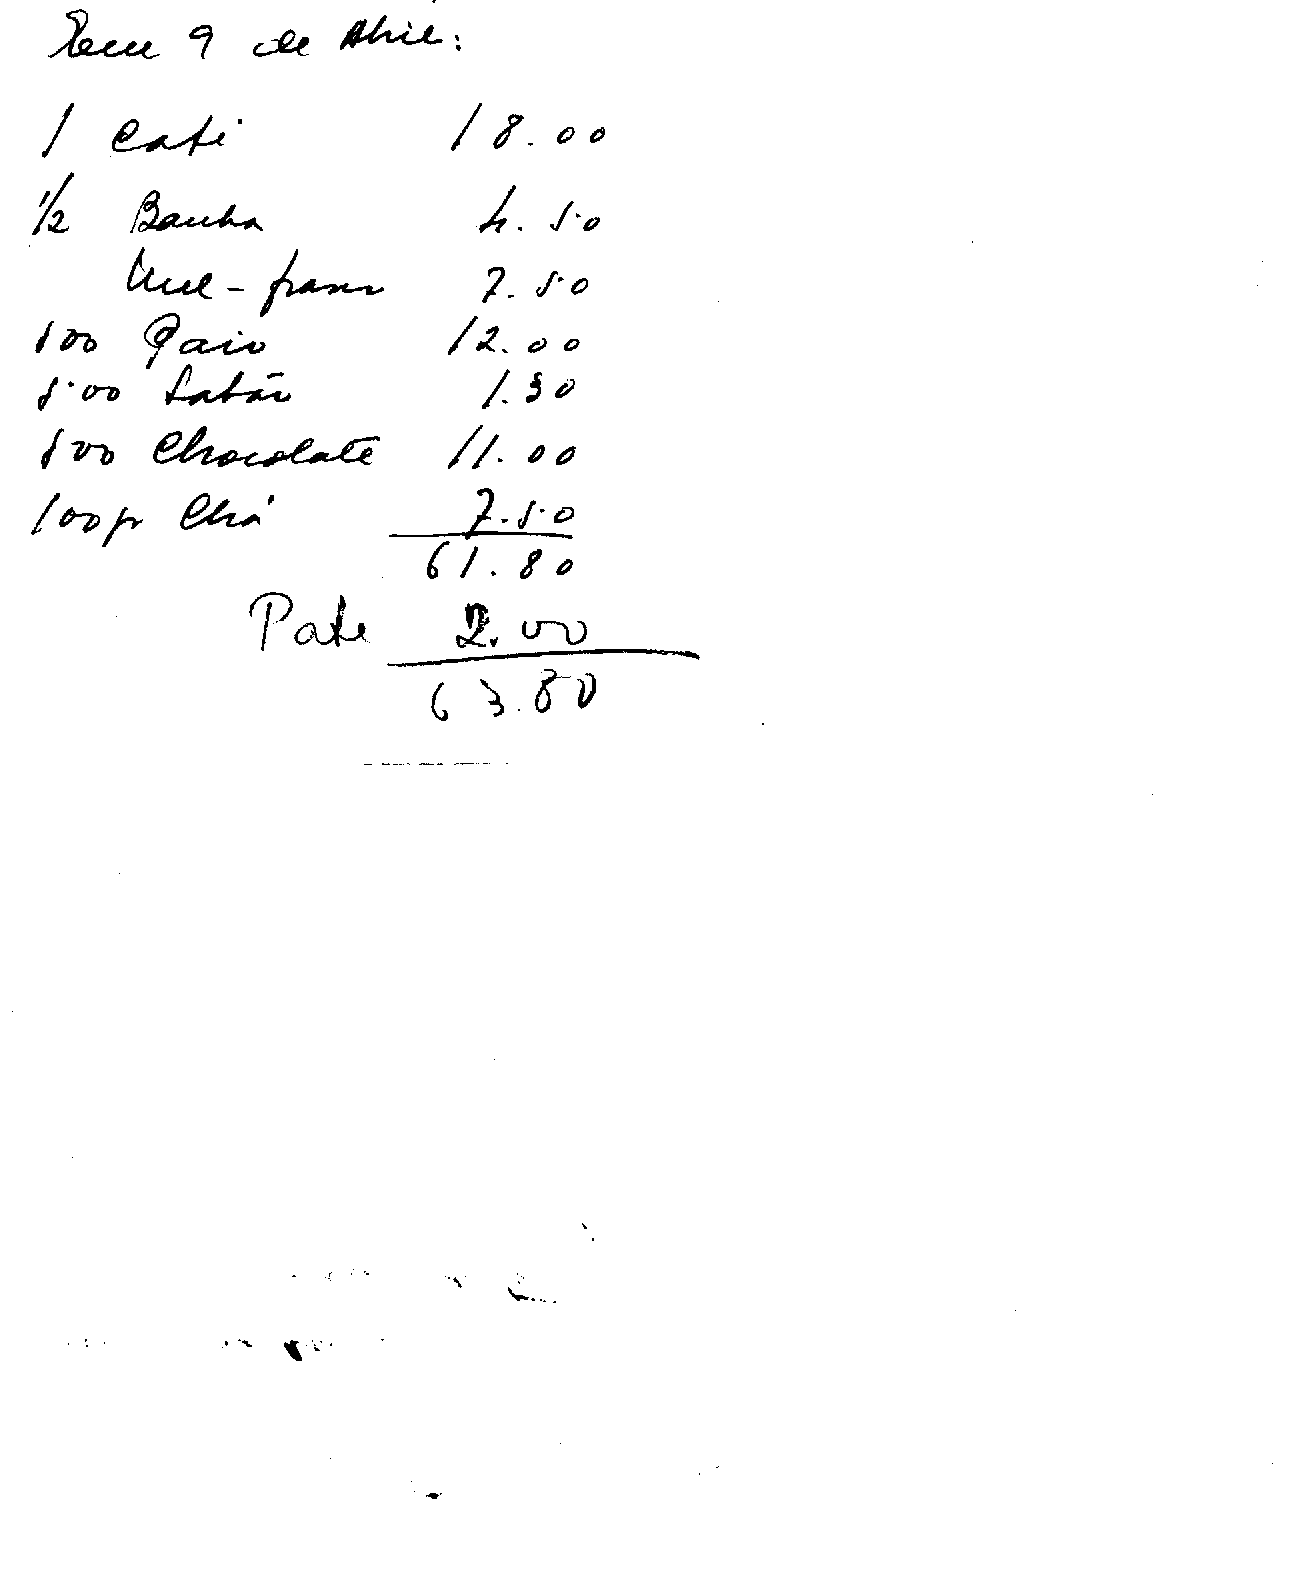 Em 9 de Abril:
1 Café 18.00
1/2 Banha 4.50
Mel - frasco 7.50
500 Paio 12.00
500 Sabão 1.30
500 Chocolate 11.00
100gr Chá 7.50
61.80
Pate 2.00
63.80